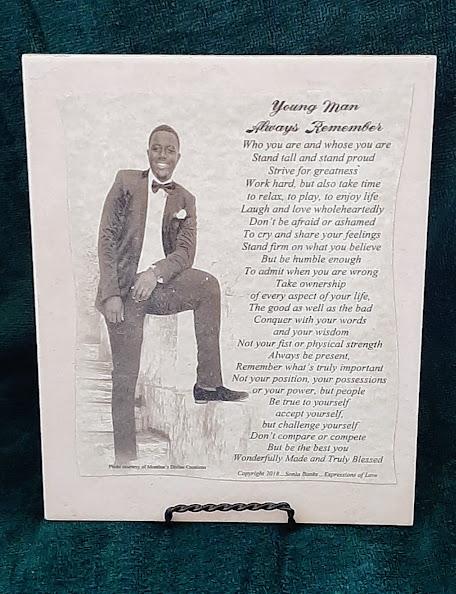 Young Man
Always Remember
Who you are and whose you are
Stand tall and stand proud
Strive for greatness
Work hard, but also take time
to relax, to play, to enjoy life
Laugh and love wholeheartedly
Don't be afraid or ashamed
To cry and share your feelings
Stand firm on what you believe
But be humble enough
To admit when you are wrong
Take ownership
of every aspect of your life,
The good as well as the bad
Conquer with your words
and your wisdom
Not your fist or physical strength
Always be present,
Remember what's truly important
Not your position, your possessions
or your power, but people
Be true to yourself
accept yourself,
but challenge yourself
Don't compare or compete
But be the best you
Wonderfully Made and Truly Blessed
Photo courtesy of Divine Creations
Copyright 2018... Sonia Banks... Expressions of Love